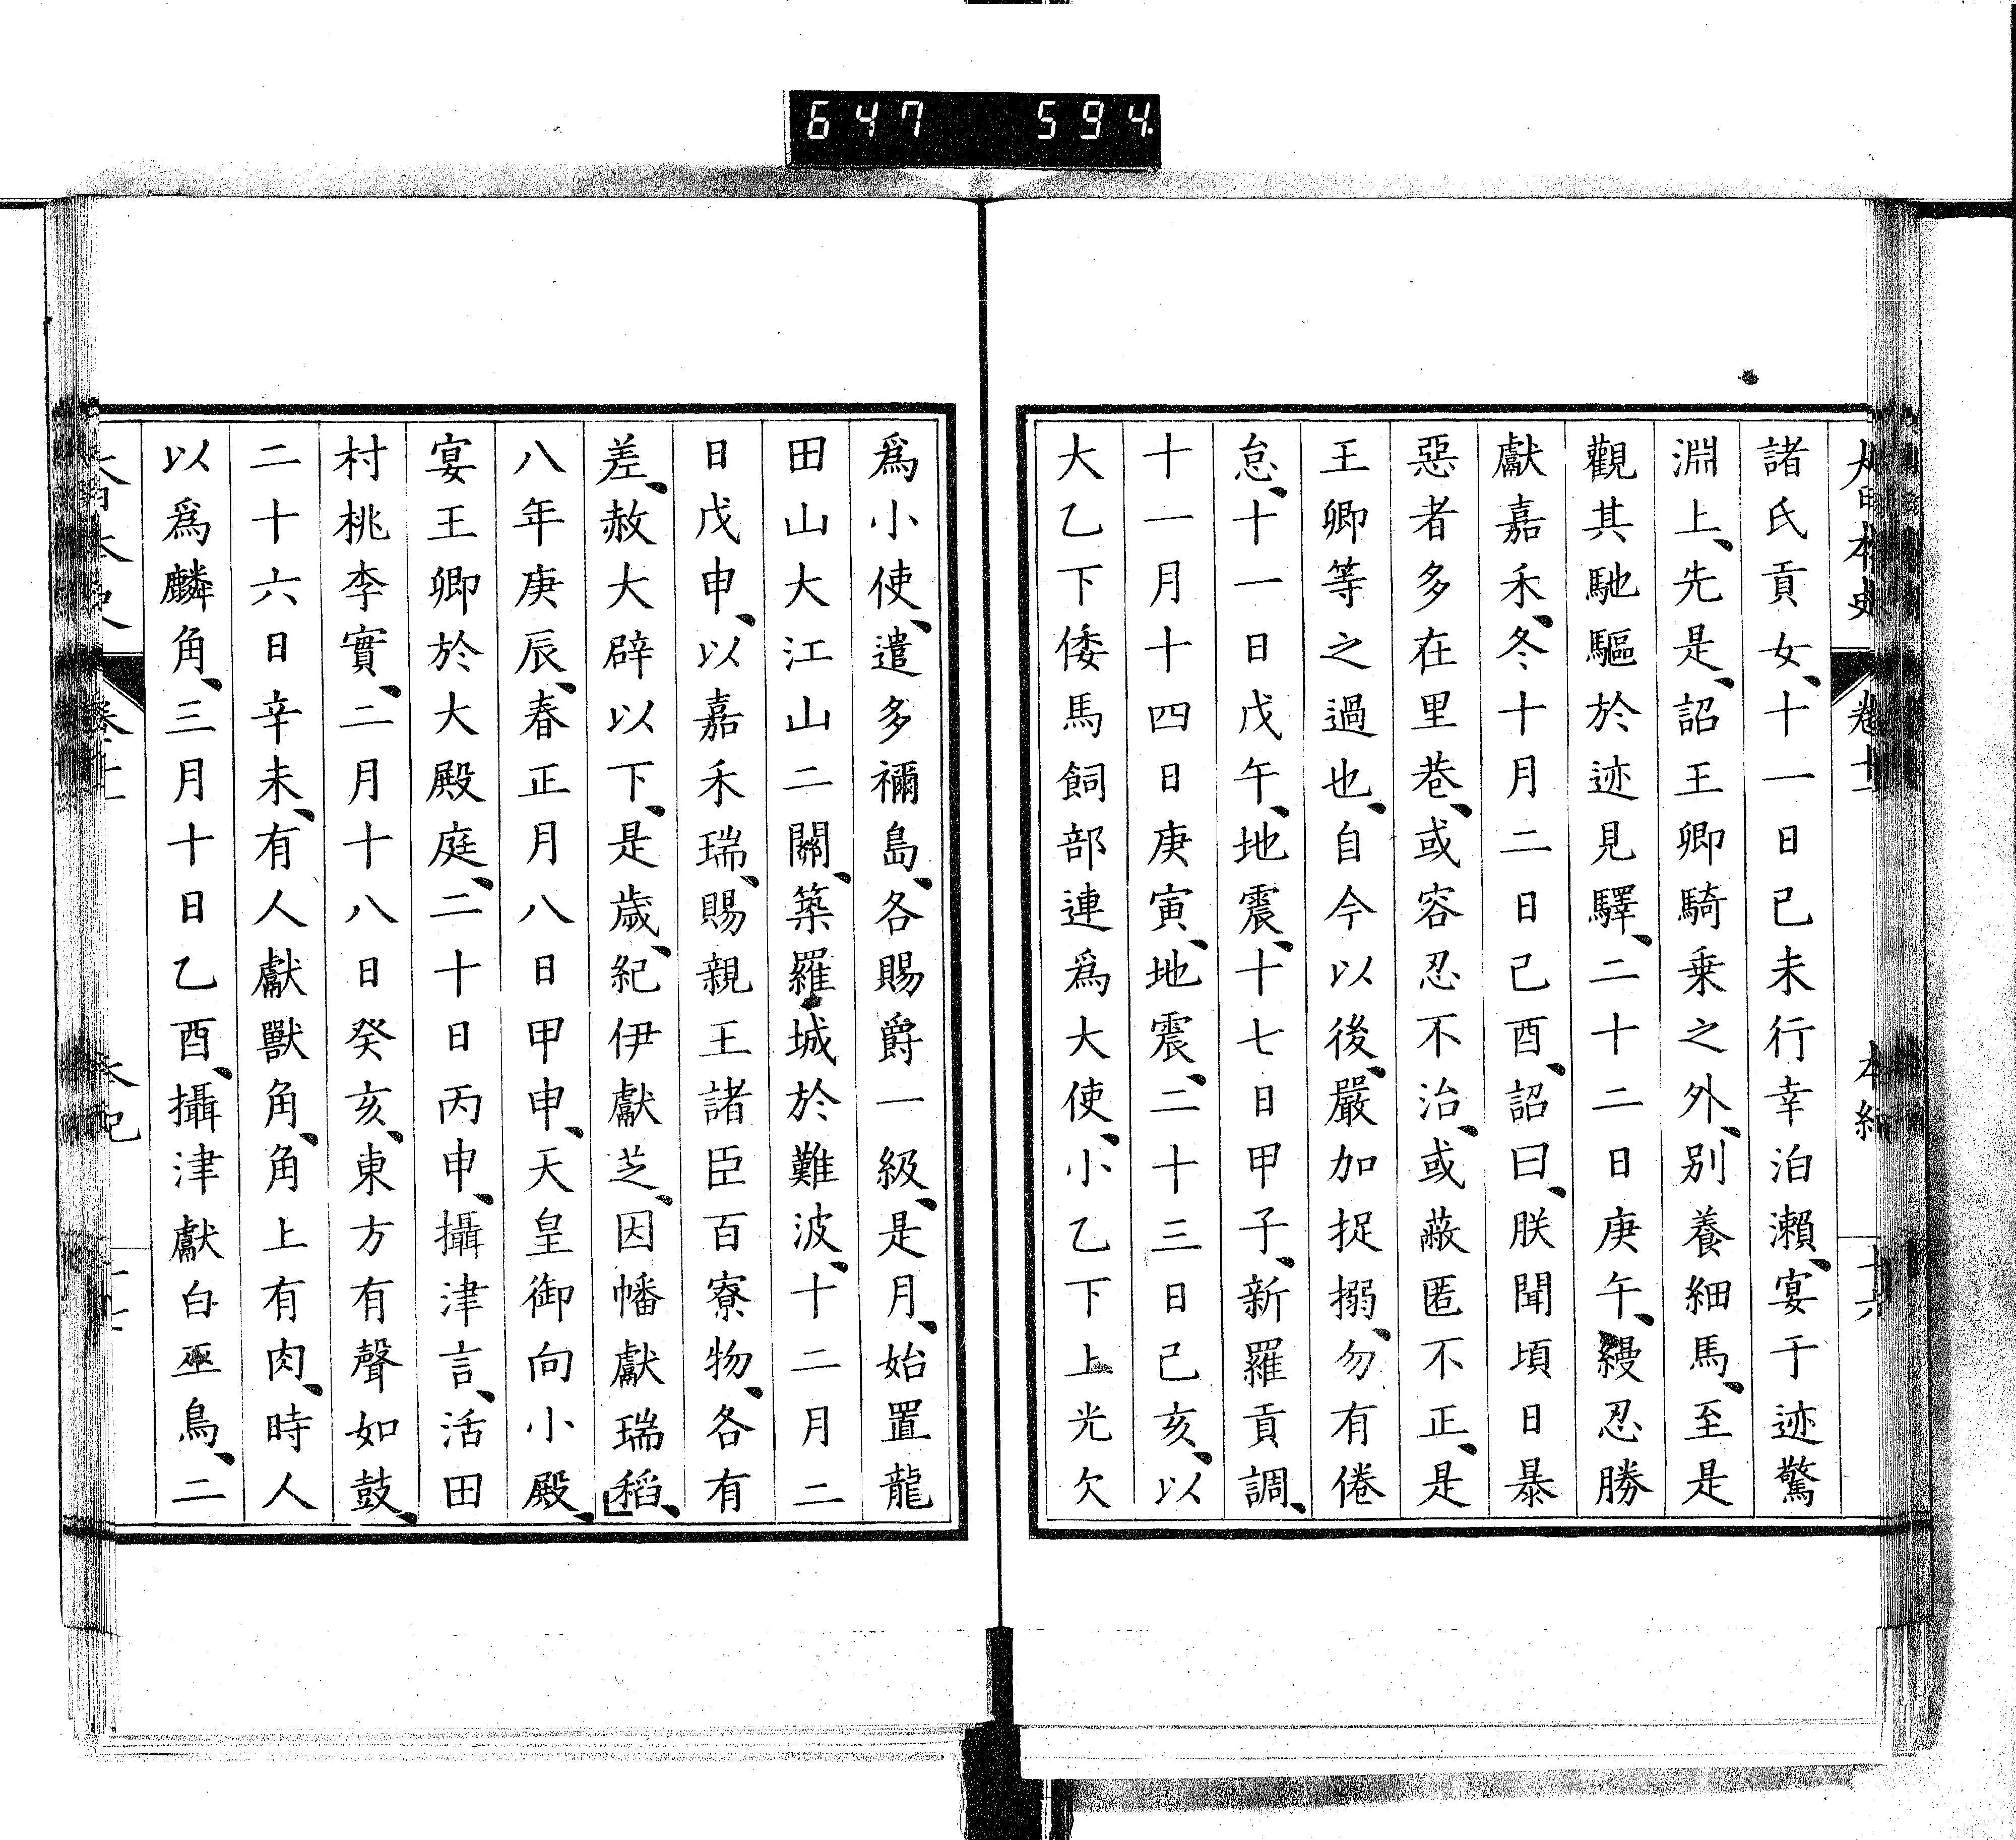 647 594.
大日本史 卷十一 本紀 十六
諸氏貢女、十一日己未行幸泊瀨、宴于迹驚
淵上、先是、詔王卿騎乗之外、別養細馬、至是
觀其馳驅於迹見驛、二十二日庚午、縵忍勝
獻嘉禾、冬十月二日己酉、詔曰、朕聞頃日暴
惡者多在里巷、或容忍不治、或蔽匿不正、是
王卿等之過也、自今以後、嚴加捉搦、勿有倦
怠、十一日戊午、地震、十七日甲子、新羅貢調、
十一月十四日庚寅、地震、二十三日己亥、以
大乙下倭馬飼部連爲大使、小乙下上光欠
爲小使、遣多禰島、各賜爵一級、是月、始置龍
田山大江山二關、築羅城於難波、十二月二
日戊申、以嘉禾瑞、賜親王諸臣百寮物、各有
差、赦大辟以下、是歲、紀伊獻芝、因幡獻瑞稻、
八年庚辰、春正月八日甲申、天皇御向小殿、
宴王卿於大殿庭、二十日丙申、攝津言、活田
村桃李實、二月十八日癸亥、東方有聲如鼓、
二十六日辛未、有人獻獸角、角上有肉、時人
以爲麟角、三月十日乙酉、攝津獻白巫鳥、二